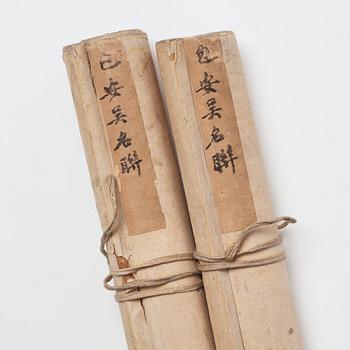 包安吴名聯
包安吴名聯